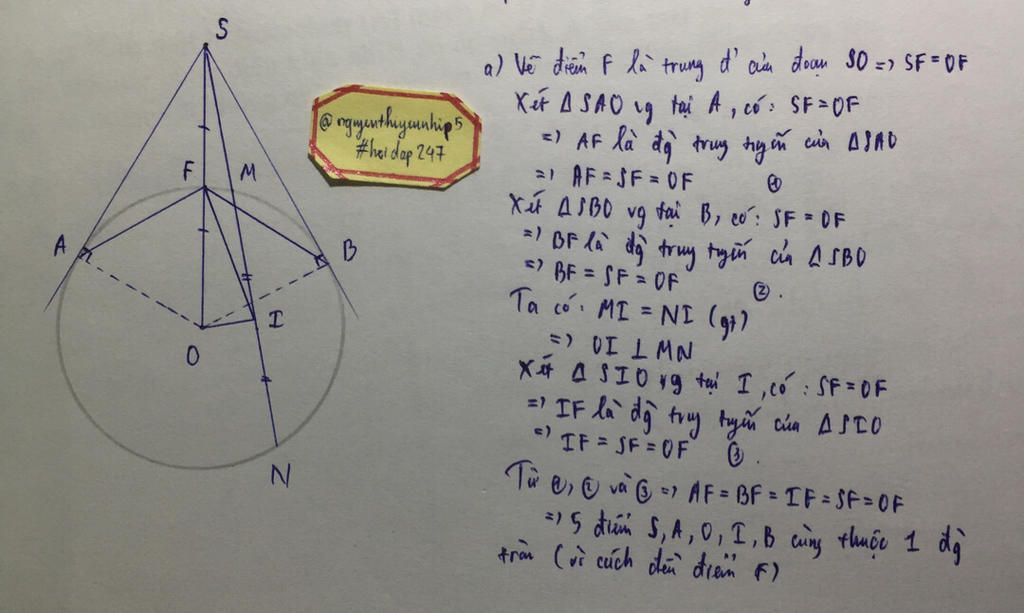 S
@nguyenthuyeunhip5
#hoidap247
F
M
A
B
I
O
N
a) Vẽ điểm F là trung đ' của đoạn SO => SF = OF
Xét ΔSAO vg tại A, có: SF = OF
=> AF là đg trung tuyến của ΔSAO
=> AF = SF = OF ①
Xét ΔSBO vg tại B, có: SF = OF
=> BF là đg trung tuyến của ΔSBO
=> BF = SF = OF ②.
Ta có: MI = NI (gt)
=> OI ⊥ MN
Xét ΔSIO vg tại I, có: SF = OF
=> IF là đg trung tuyến của ΔSIO
=> IF = SF = OF ③.
Từ ①, ② và ③ => AF = BF = IF = SF = OF
=> 5 điểm S, A, O, I, B cùng thuộc 1 đg
tròn (vì cách đều điểm F)